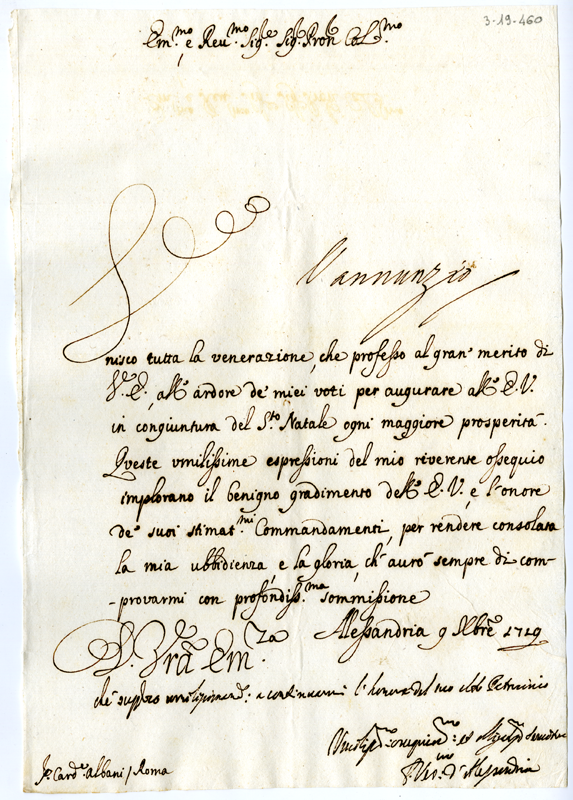 3-19-460
Em.mo e Reu.mo Sig.e Sig.r Pron Col.mo
l'annunzio
nisco tutta la venerazione, che professo al gran merito di
V.E., all' ardore de' miei voti per augurare all' E.V.
in congiuntura del S.to Natale ogni maggiore prosperità.
Queste vmilissime espressioni del mio riverente ossequio
implorano il benigno gradimento dell' E.V. e l'onore
de' suoi stimat.mi Commandamenti, per rendere consolata
la mia ubbidienza, e la gloria, ch' aurò sempre di com-
-provarmi con profondiss.ma sommissione
D. Vra Em.za Alessandria 9 Xbre 1719
che supplico a continuarmi l'honore del suo Patrocinio
Vmilis.mo
Il Ves.o d'Alessandria
Sr. Card.e Albani / Roma